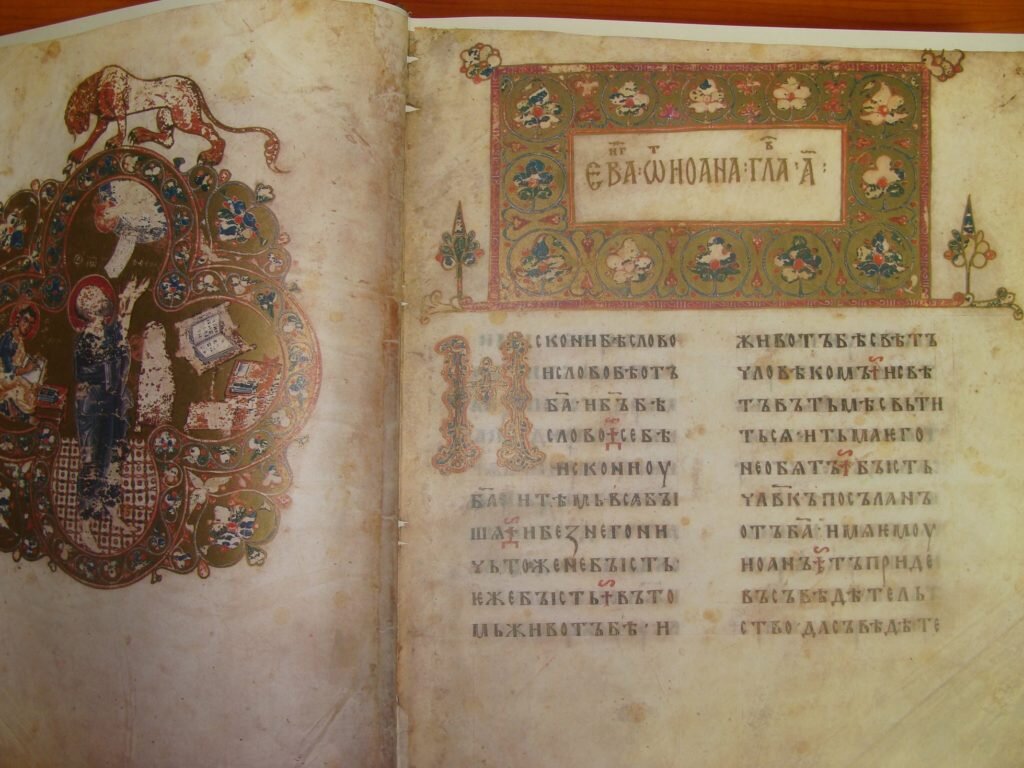 ЕВА·ѾИОАНА·ГЛА·А҃:
ИСКОНИБѢСЛОВО
ИСЛОВОБѢОТЪ
БА҃·ИБ҃ЪБѢ
СЛОВО·СЕБѢ
ИСКОНИОУ
БА҃·ИТѢМЬВСѦБЪІ
ШѦ·ИБЕЗНЕГОНИ
ЧЬТОЖЕНЕБЪІСТЬ
ЕЖЕБЪІСТЬ·ВЪТО
МЬЖИВОТЪБѢ·И
ЖИВОТЪБѢСВѢТЪ
ЧЛОВѢКОМЪ·ИСВѢ
ТЪВЪТЬМѢСВЬТИ
ТЬСѦ·ИТЬМАѤГО
НЕОБѦТЪ·БЪІСТЬ
ЧЛ҃ВКЪПОСЪЛАНЪ
ОТЪБА҃·ИМѦѤМОУ
ИОАНЪ·ТЪПРИДЕ
ВЪСЪВѢДѢТЕЛЬ
СТВО·ДАСЪВѢДѢТЕ